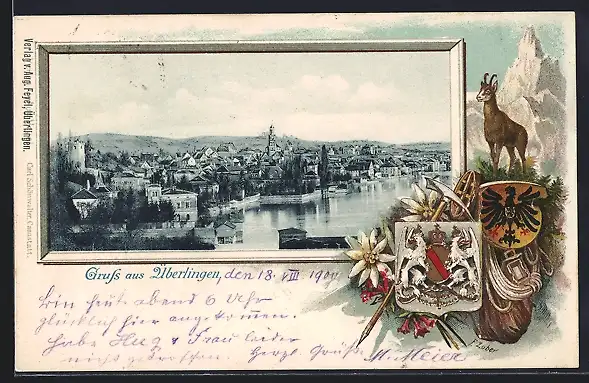 Verlag v. Aug. Feyel, Überlingen.
Carl Schönwalter, Cannstatt.
Gruß aus Überlingen, den 18. VIII 1900
Bin heut abend 6 Uhr
glücklich hier angekommen.
Habe Hug & Frau leider
nicht getroffen. Herzl. Grüße M. Meier